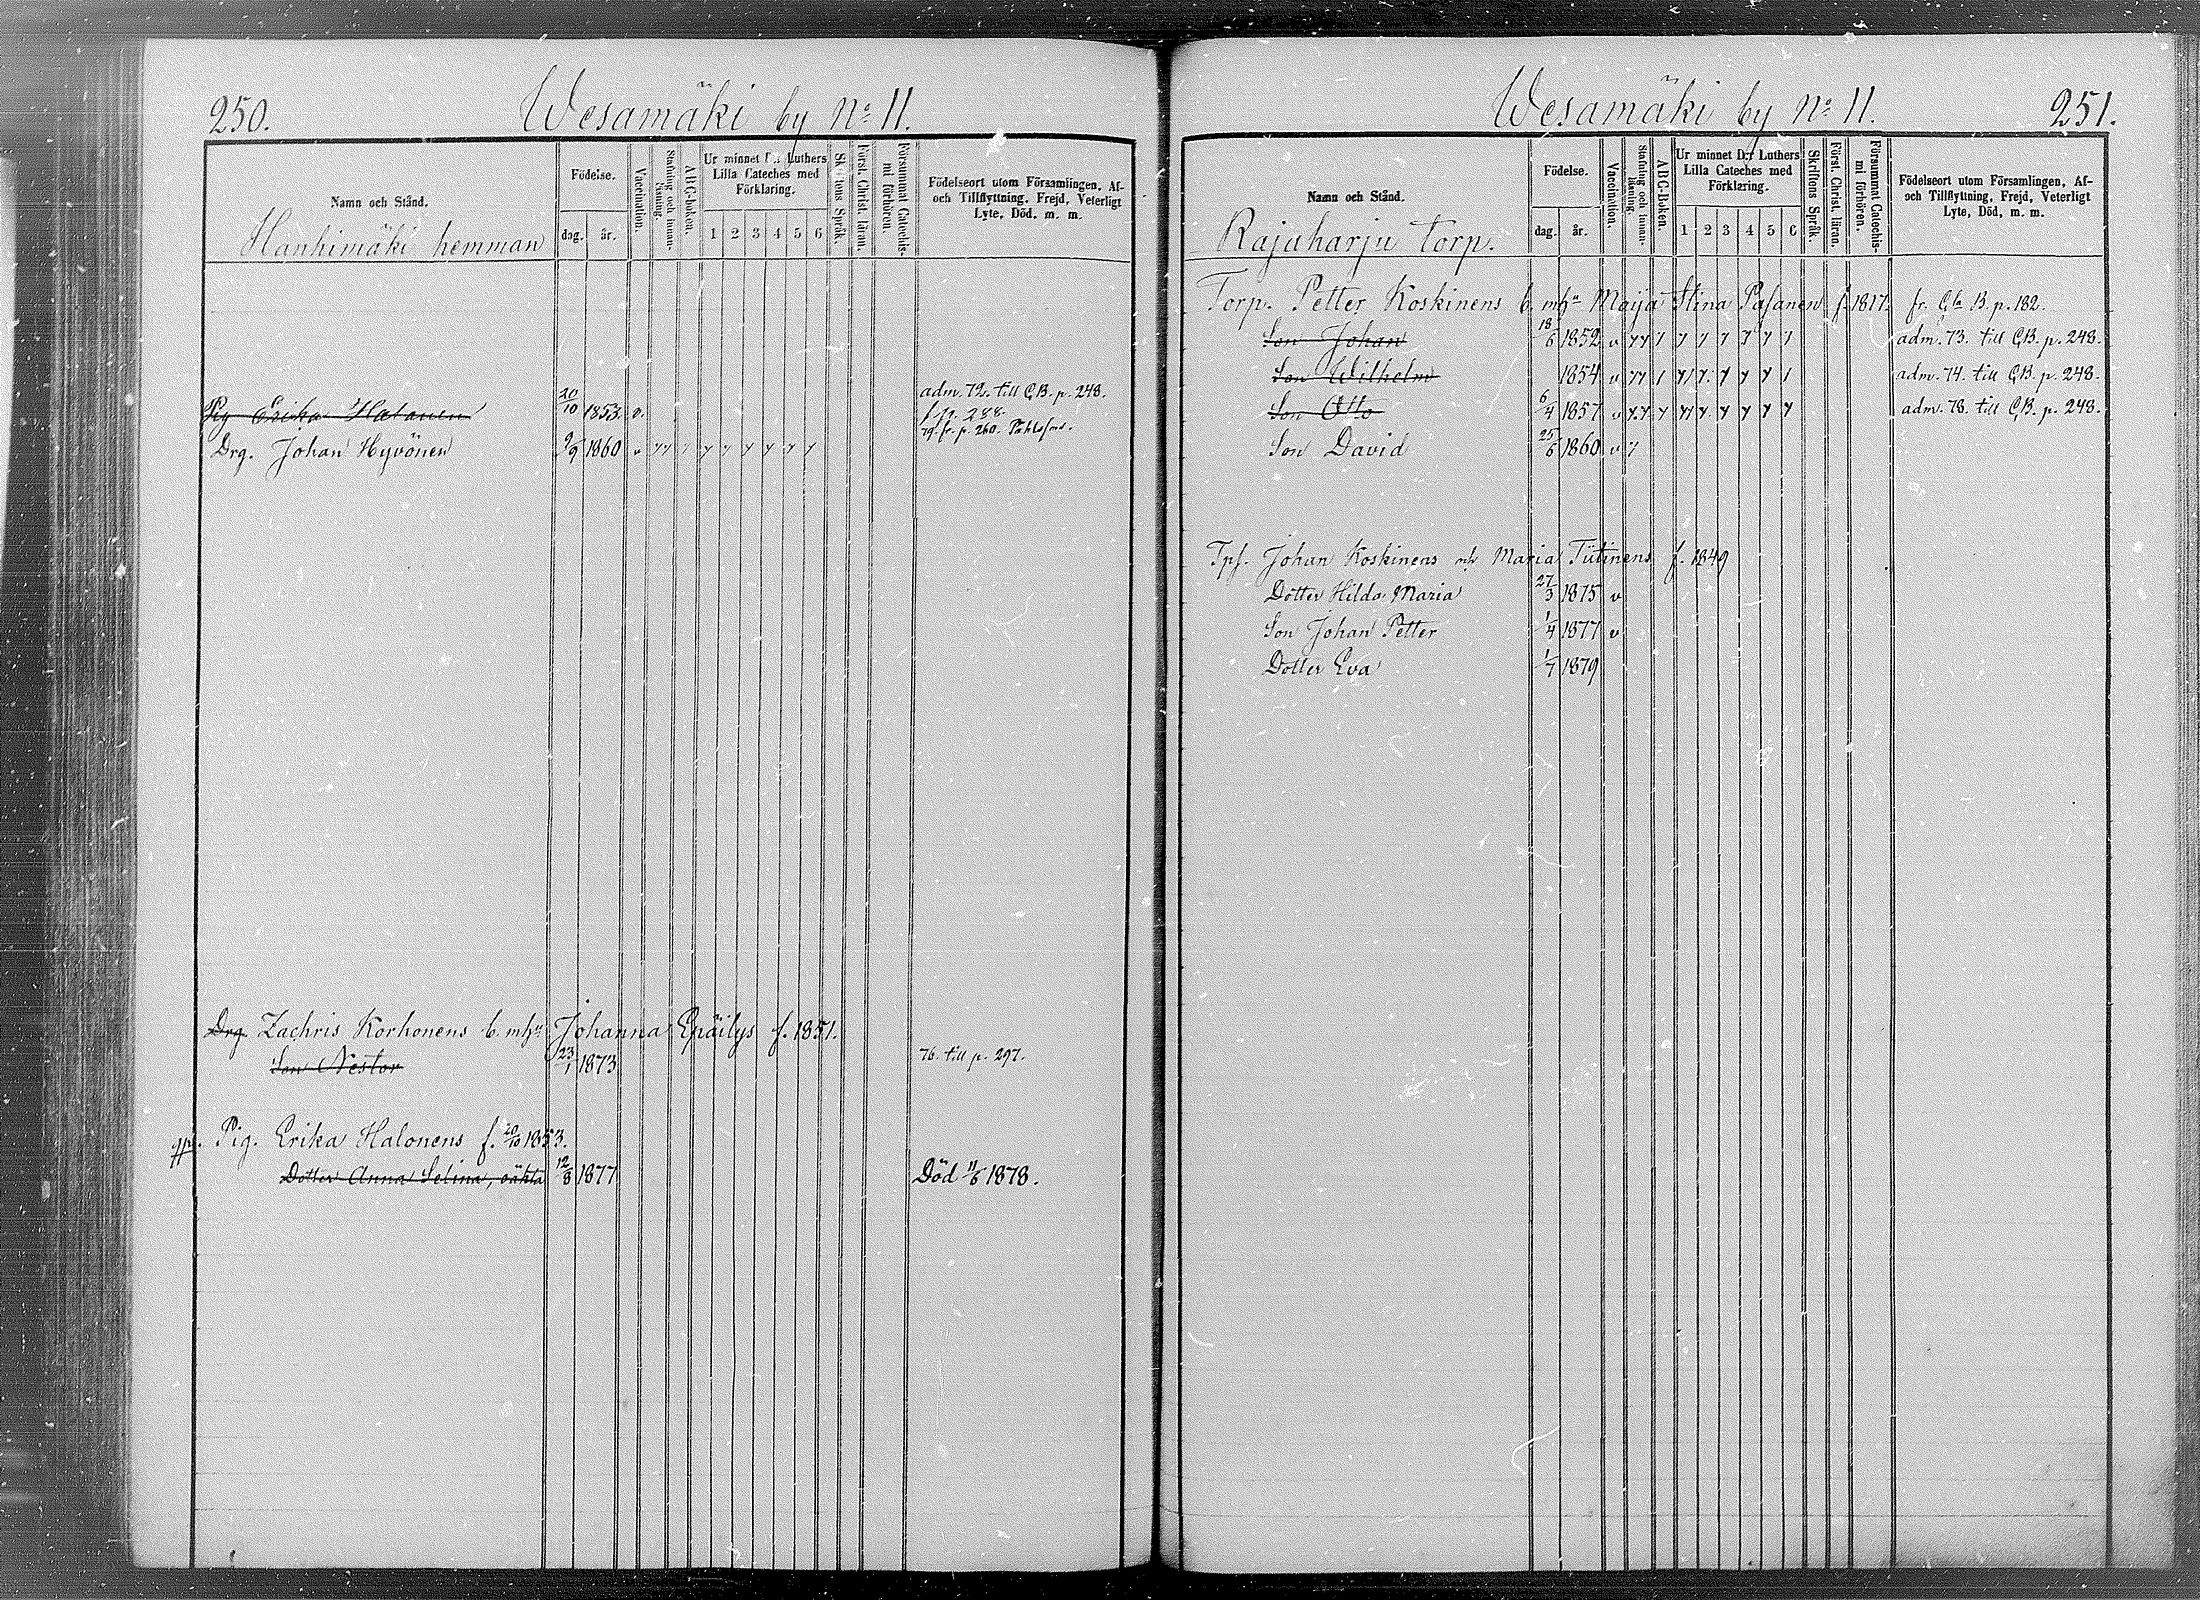 250.
Wesamäki by No 11.
Namn och Stånd.
Hanhimäki hemman
Födelse.
dag. år.
Vaccination.
Stafning och innanläsning.
ABC-boken.
Ur minnet D:r Luthers Lilla Cateches med Förklaring.
1 2 3 4 5 6
Skriftens Språk.
Först. Christ. läran.
Försummat Catechismi förhören.
Födelseort utom Församlingen, Af-
och Tillflyttning, Frejd, Veterligt
Lyte, Död, m. m.
adm. 72. till CB. p. 248.
Pig Erika Halonen 20/10 1853 v. f. p. 288
79. fr. p. 260.
Drg. Johan Hyvönen 9/9 1860 v
Drg Zachris Korhonens b. mhu Johanna Epäilys f. 1851.
Son Nestor 23/1 1873 76. till p. 297.
Pig. Erika Halonens f. 20/10 1853.
Dotter Anna Selina, oäkta 12/8 1877 Död 11/6 1878.
Wesamäki by No 11.
251.
Namn och Stånd.
Rajaharju torp.
Födelse.
dag. år.
Vaccination.
Stafning och innanläsning.
ABC-Boken.
Ur minnet D:r Luthers
Lilla Cateches med
Förklaring.
1 2 3 4 5 6
Skriftens Språk.
Först. Christ. läran.
Försummat Catechismi förhören.
Födelseort utom Församlingen, Af-
och Tillflyttning, Frejd, Veterligt
Lyte, Död, m. m.
Torp. Petter Koskinens b. mhu Maija Stina Pasanen f. 1817. fr. Gla B. p. 182.
Son Johan 18/6 1852 v adm. 73. till CB. p. 248.
Son Wilhelm 1854 v adm. 74. till CB. p. 248.
Son Otto 6/4 1857 v adm. 78. till CB. p. 248.
Son David 25/6 1860 v
Tps. Johan Koskinens och Maria Tiitinens f. 1849
Dotter Hilda Maria 27/3 1875 v
Son Johan Petter 1/4 1877 v
Dotter Eva 1/7 1879